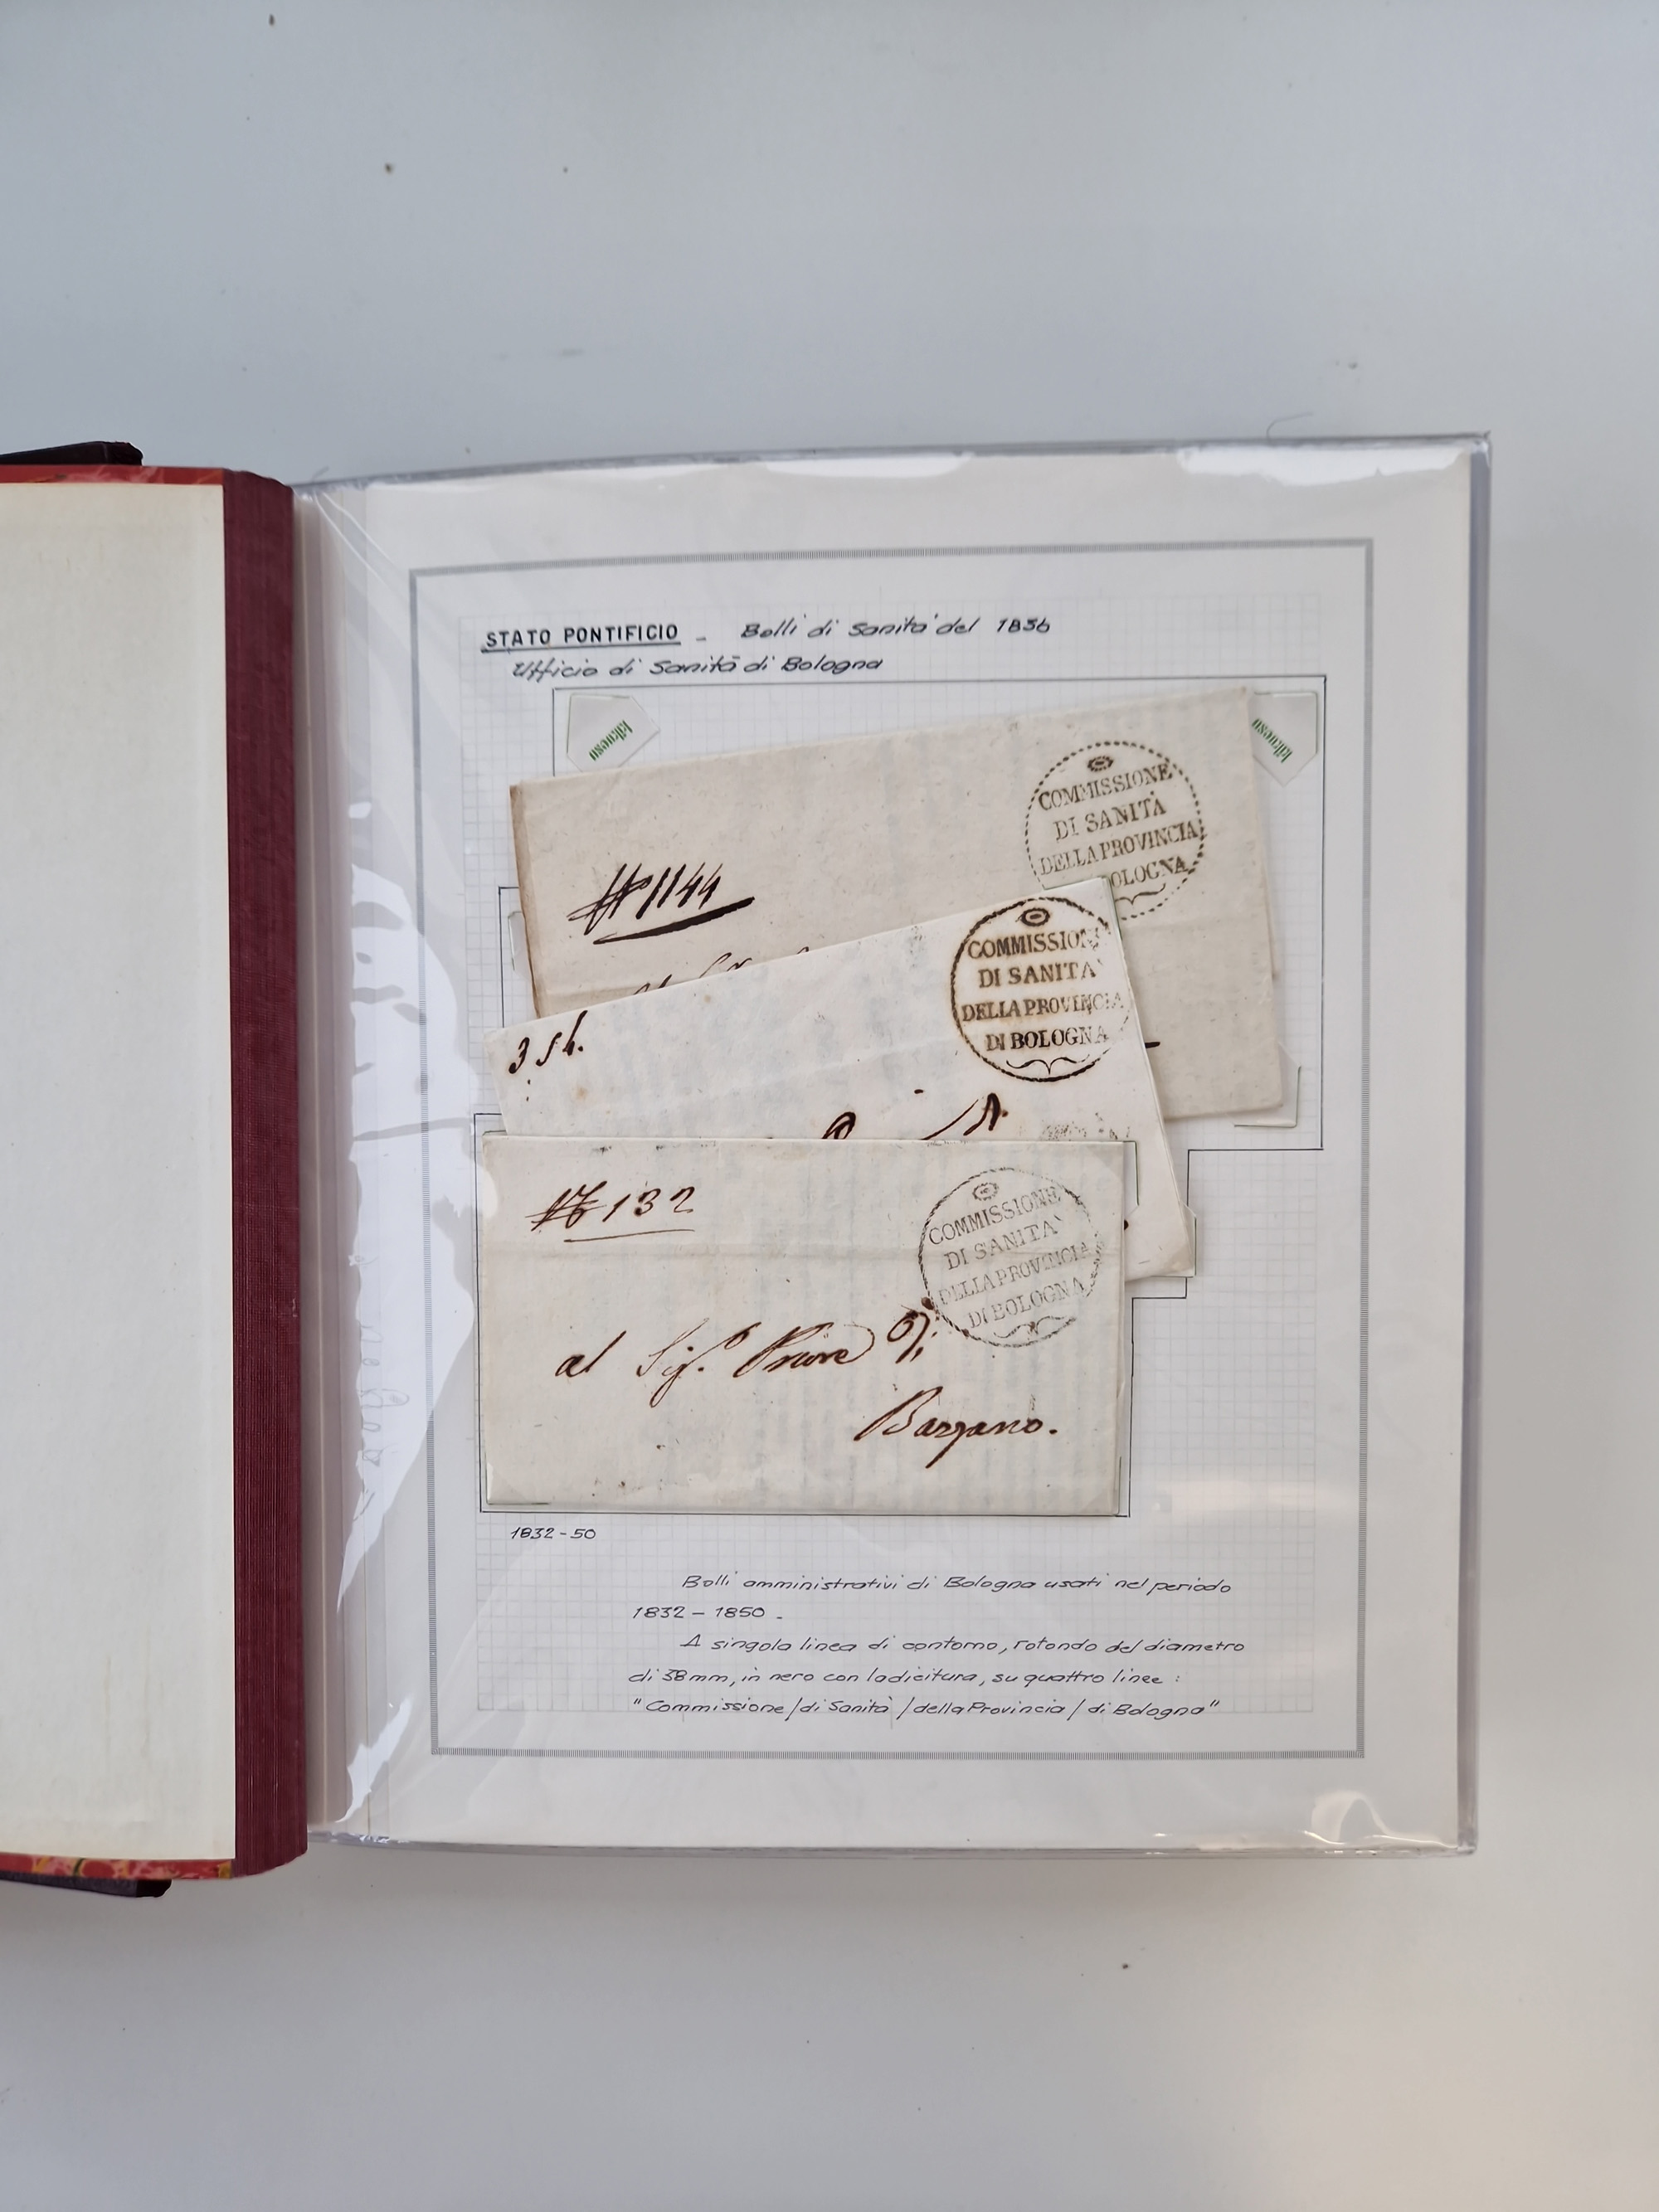 STATO PONTIFICIO - Bolli di Sanita' del 1836
Ufficio di Sanità di Bologna
COMMISSIONE
DI SANITÀ
DELLA PROVINCIA
BOLOGNA
1144
COMMISSION
DI SANITA'
DELLA PROVINCIA
DI BOLOGNA
354.
COMMISSIONE
DI SANITA'
DELLA PROVINCIA
DI BOLOGNA
132
al Sig.r Priore Di
Bazzano.
1832-50
Bolli amministrativi di Bologna usati nel periodo
1832 - 1850 -
A singola linea di contorno, rotondo del diametro
di 38mm, in nero con ladicitura, su quattro linee :
"Commissione / di Sanità / della Provincia / di Bologna"